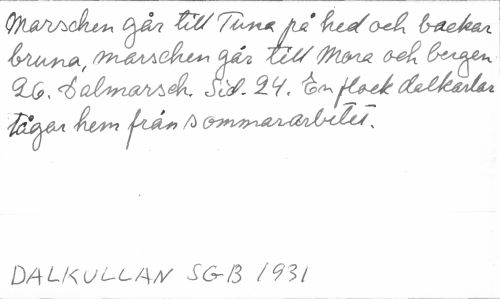 Marschen går till Tuna på hed och backar
bruna, marschen går till Mora och bergen.
26. Dalmarsch. Sid. 24. En flock dalkarlar
tågar hem från sommararbetet.
DALKULLAN SGB 1931